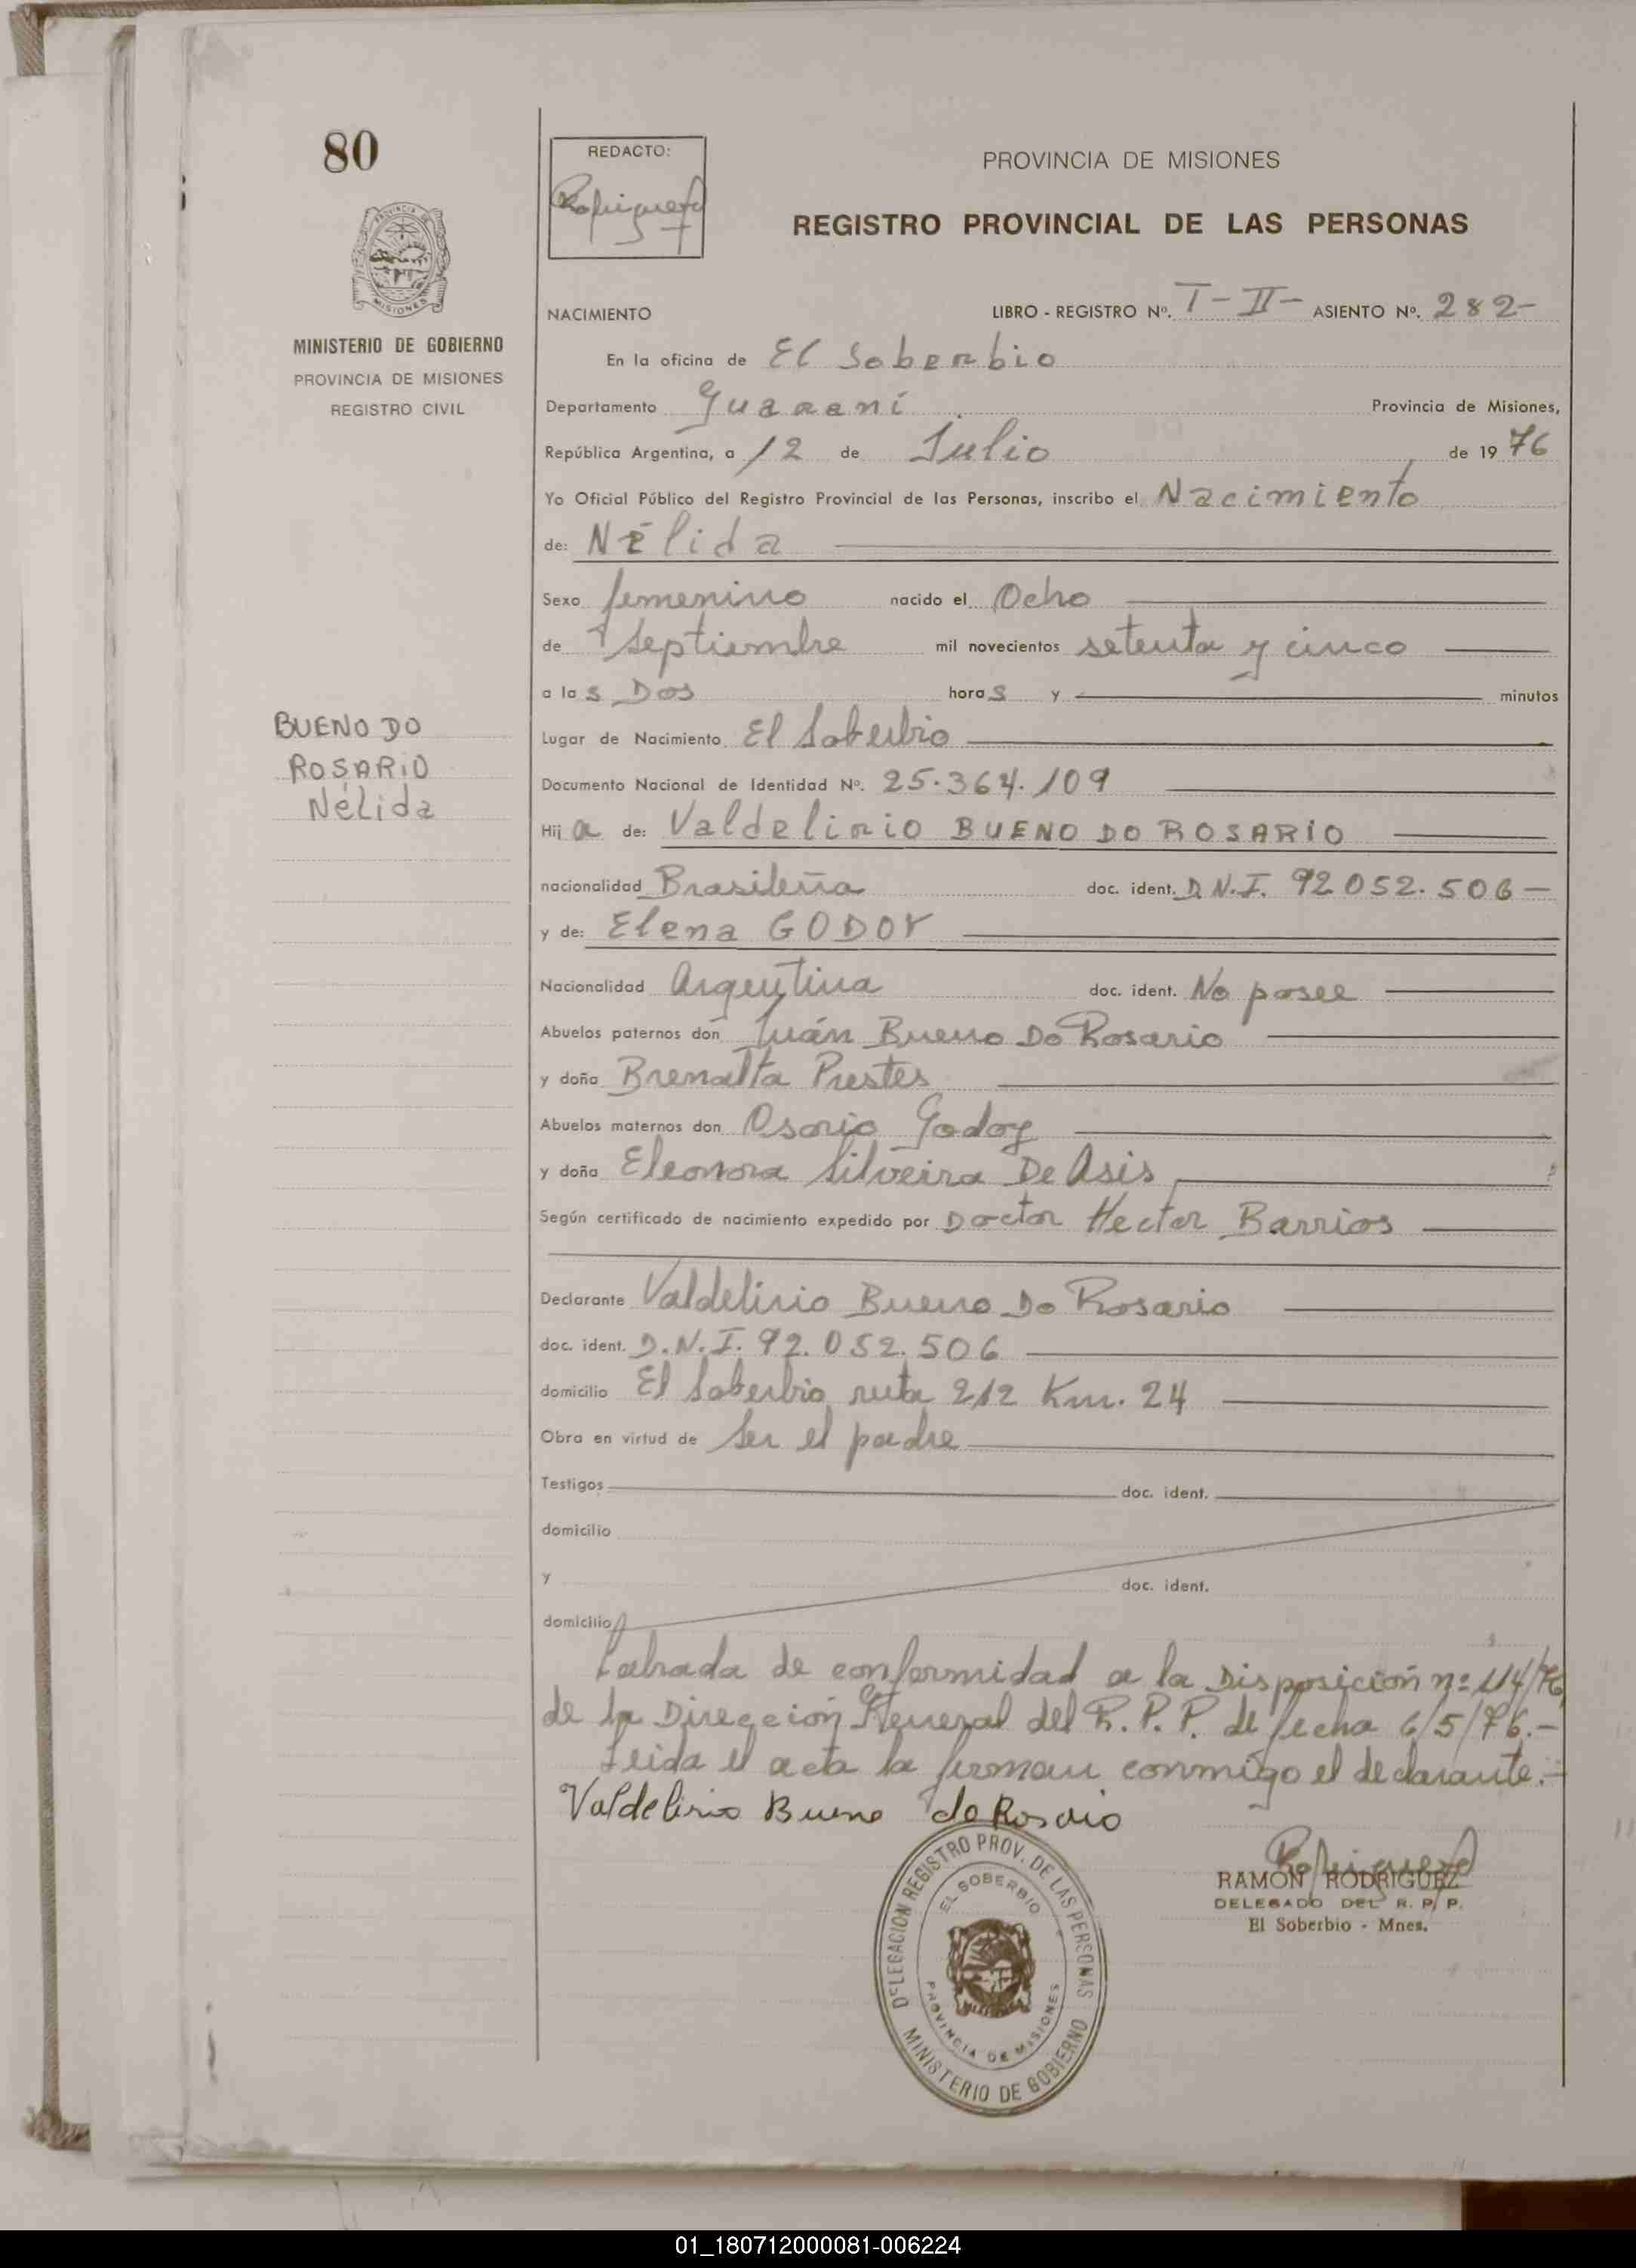 80
MINISTERIO DE GOBIERNO
PROVINCIA DE MISIONES
REGISTRO CIVIL
BUENO DO
ROSARIO
Nélida
REDACTO:
PROVINCIA DE MISIONES
REGISTRO PROVINCIAL DE LAS PERSONAS
NACIMIENTO LIBRO - REGISTRO Nº. T-II- ASIENTO Nº. 282-
En la oficina de El Soberbio
Departamento Guaraní Provincia de Misiones,
República Argentina, a 12 de Julio de 1976
Yo Oficial Público del Registro Provincial de las Personas, inscribo el Nacimiento
de: Nélida
Sexo femenino nacido el Ocho
de Septiembre mil novecientos setenta y cinco
a las Dos horas y minutos
Lugar de Nacimiento El Soberbio
Documento Nacional de Identidad Nº. 25.364.109
Hija de: Valdelirio BUENO DO ROSARIO
nacionalidad Brasileña doc. ident. D.N.I. 92.052.506-
y de: Elena GODOY
Nacionalidad Argentina doc. ident. No posee
Abuelos paternos don Juán Bueno Do Rosario
y doña Brenatta Prestes
Abuelos maternos don Osorio Godoy
y doña Eleonora Silveira De Asis
Según certificado de nacimiento expedido por Doctor Hector Barrios
Declarante Valdelirio Bueno Do Rosario
doc. ident. D.N.I. 92.052.506
domicilio El Soberbio ruta 212 Km. 24
Obra en virtud de Ser el padre
Testigos doc. ident.
domicilio
y doc. ident.
domicilio
Labrada de conformidad a la Disposición nº 114/76
de la Dirección General del R.P.P. de fecha 6/5/76.-
Leida el acta la firman conmigo el declarante.-
Valdelirio Bueno do Rosario
RAMON RODRIGUEZ
DELEGADO DEL R. P. P.
El Soberbio - Mnes.
DELEGACION REGISTRO PROV. DE LAS PERSONAS
EL SOBERBIO
PROVINCIA DE MISIONES
MINISTERIO DE GOBIERNO
01_180712000081-006224